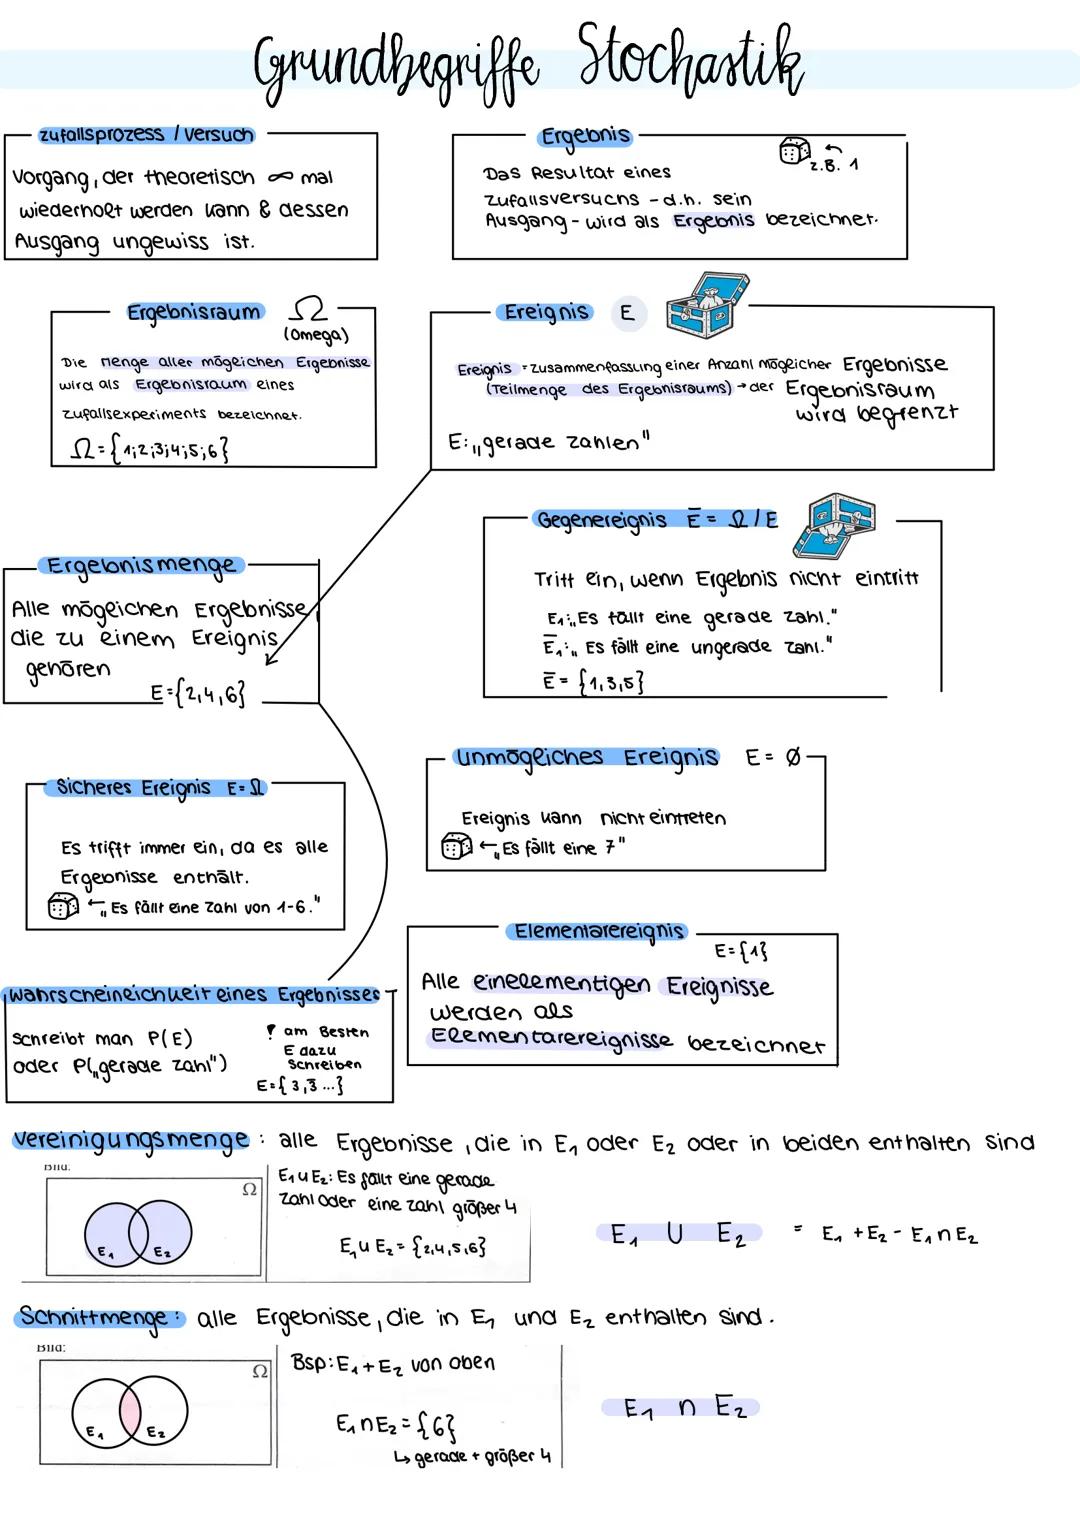 Grundbegriffe Stochastik
Zufallsprozess / Versuch
Vorgang, der theoretisch ∞ mal
wiederholt werden kann & dessen
Ausgang ungewiss ist.
Ergebnis
z.B. 1
Das Resultat eines
Zufallsversuchs - d.h. sein
Ausgang - wird als Ergebnis bezeichnet.
Ergebnisraum Ω
(Omega)
Die Menge aller möglichen Ergebnisse
wird als Ergebnisraum eines
Zufallsexperiments bezeichnet.
Ω = {1;2;3;4;5;6}
Ereignis E
Ereignis = Zusammenfassung einer Anzahl möglicher Ergebnisse
(Teilmenge des Ergebnisraums) → der Ergebnisraum
wird begrenzt
E: „gerade Zahlen"
Gegenereignis E̅ = Ω / E
Tritt ein, wenn Ergebnis nicht eintritt
E₁: „Es fällt eine gerade Zahl."
E̅₁: „Es fällt eine ungerade Zahl."
E̅ = {1,3,5}
Ergebnismenge
Alle möglichen Ergebnisse,
die zu einem Ereignis
gehören
E = {2,4,6}
Unmögliches Ereignis E = Ø
Ereignis kann nicht eintreten
← „Es fällt eine 7"
Sicheres Ereignis E = Ω
Es trifft immer ein, da es alle
Ergebnisse enthält.
← „Es fällt eine Zahl von 1-6."
Elementarereignis
E = {1}
Alle einelementigen Ereignisse
werden als
Elementarereignisse bezeichnet
Wahrscheinlichkeit eines Ergebnisses
Schreibt man P(E)
oder P(„gerade Zahl")
! am Besten
E dazu
Schreiben
E = {3,3̅ ...}
Vereinigungsmenge: alle Ergebnisse, die in E₁ oder E₂ oder in beiden enthalten sind
Bild:
Ω
E₁ E₂
E₁ ∪ E₂: Es fällt eine gerade
Zahl oder eine Zahl größer 4
E₁ ∪ E₂ = {2,4,5,6}
E₁ ∪ E₂ = E₁ + E₂ - E₁ ∩ E₂
Schnittmenge: alle Ergebnisse, die in E₁ und E₂ enthalten sind.
Bild:
Ω
E₁ E₂
Bsp: E₁ + E₂ von oben
E₁ ∩ E₂ = {6}
↳ gerade + größer 4
E₁ ∩ E₂